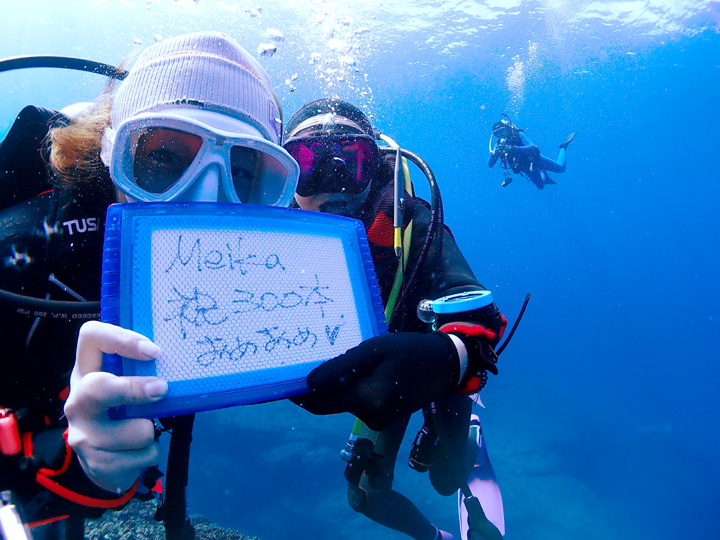 Meika
祝300本
おめおめ♡
TUS